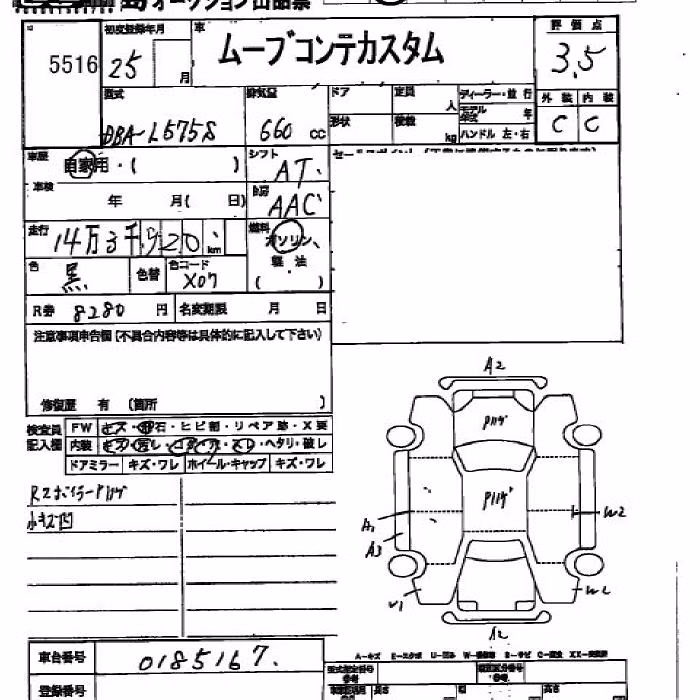 オークション出品票
5516
初度登録年月
25
月
車
ムーブコンテカスタム
評価点
3.5
外装 内装
C C
型式
DBA-L575S
排気量
660 cc
ドア
形状
定員 人
積載 kg
ディーラー・並行
モデル年式 年
ハンドル 左・右
車歴
自家用・( )
シフト
AT
車検
年 月( 日)
冷房
AAC
走行
14万3千920 km
燃料
ガソリン
軽油
( )
色
黒
色替
色コード
X07
R券 8280 円
名変期限 月 日
注意事項申告欄(不具合内容等は具体的に記入して下さい)
修復歴 有 (箇所 )
検査員記入欄
FW キズ・飛石・ヒビ割・リペア跡・X要
内装 キズ・汚レ・コゲ・穴・スレ・ヘタリ・破レ
ドアミラー キズ・ワレ ホイール・キャップ キズ・ワレ
Rスポイラーハゲ
小キズ凹
A2
Pハゲ
Pハゲ
A1
A3
W2
W2
A2
車台番号 0185167.
登録番号